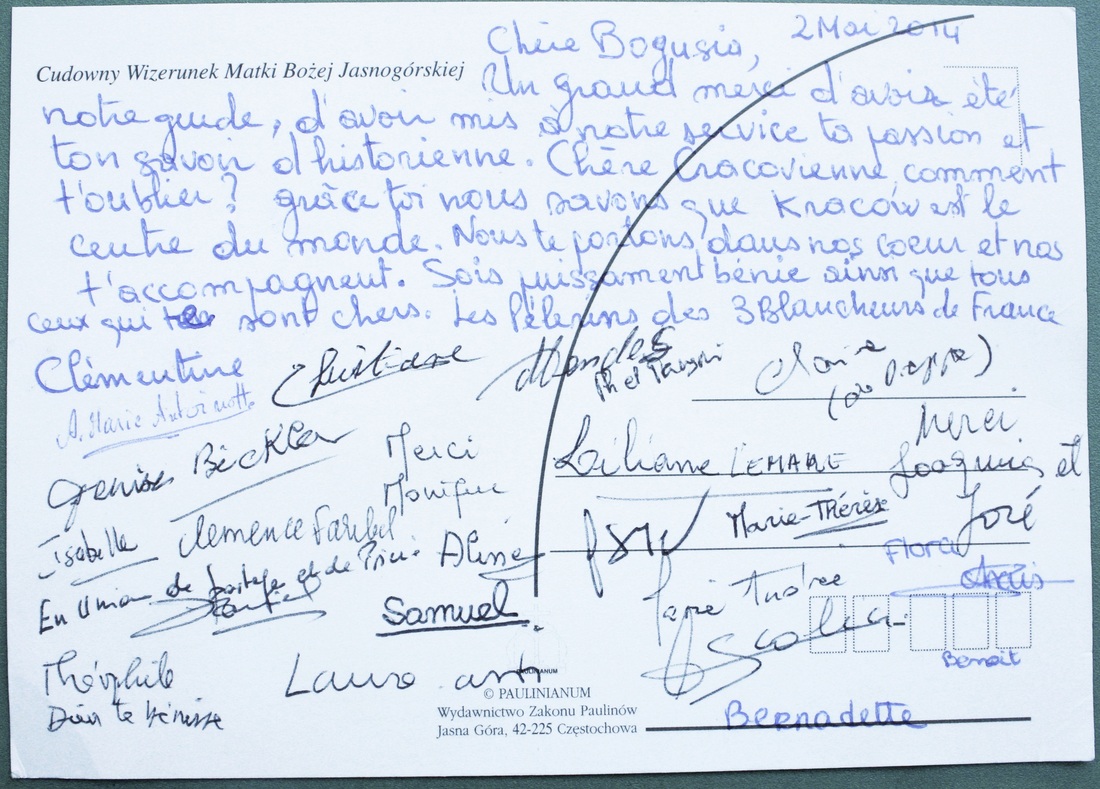 Chère Bogusia, 2 Mai 2014
Cudowny Wizerunek Matki Bożej Jasnogórskiej
Un grand merci d'avoir été
notre guide, d'avoir mis à notre service ta passion et
ton savoir d'historienne. Chère Cracovienne, comment
t'oublier? grâce toi nous savons que Kraców est le
centre du monde. Nous te portons dans nos coeur et nos
t'accompagnent. Sois puissament bénie ainsi que tous
ceux qui te sont chers. Les Pèlerins des 3 Blancheurs de France
Clémentine Christiane Mendes
Claire
A. Marie Antoinette
Denise Bickler Merci
Monique
Liliane LEMAIRE
Merci
Joaquina et
José
Isabelle Clemence Aline
Marie-Thérèse
Flora
En Union de et de
Samuel
Benoit
Théophile
Dieu te bénisse
Laura
© PAULINIANUM
Wydawnictwo Zakonu Paulinów
Jasna Góra, 42-225 Częstochowa
Bernadette